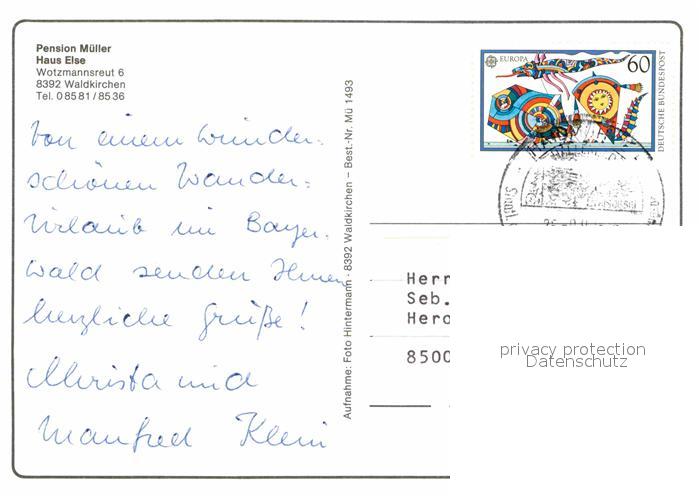 Pension Müller
Haus Else
Wotzmannsreut 6
8392 Waldkirchen
Tel. 08581/8536
Von einem wunder-
schönen Wander-
Urlaub im Bayer.
Wald senden Ihnen
herzliche Grüße!
Christa und
Manfred Klein
Aufnahme: Foto Hintermann · 8392 Waldkirchen – Best.-Nr. Mü 1493
EUROPA 60
DEUTSCHE BUNDESPOST
Herr
Seb.
Hero
8500
privacy protection
Datenschutz